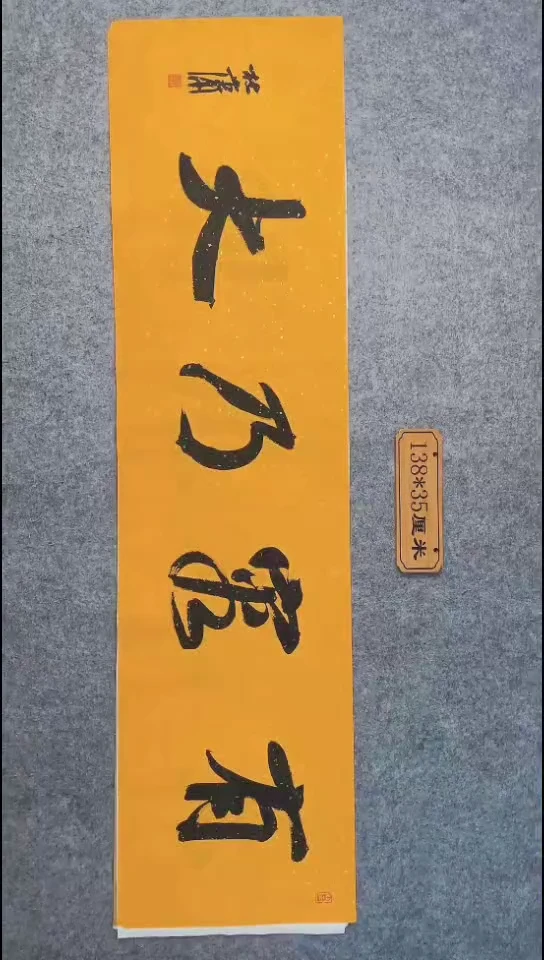 有容乃大
138*35厘米